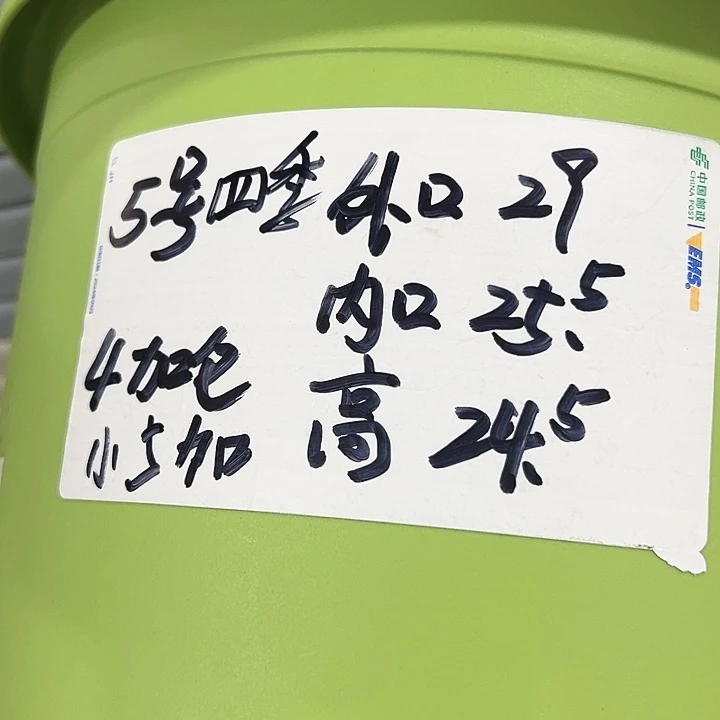 5号四季 外口 29
内口 25.5
4加仑 高 24.5
小5加
中国邮政
CHINA POST
EMS